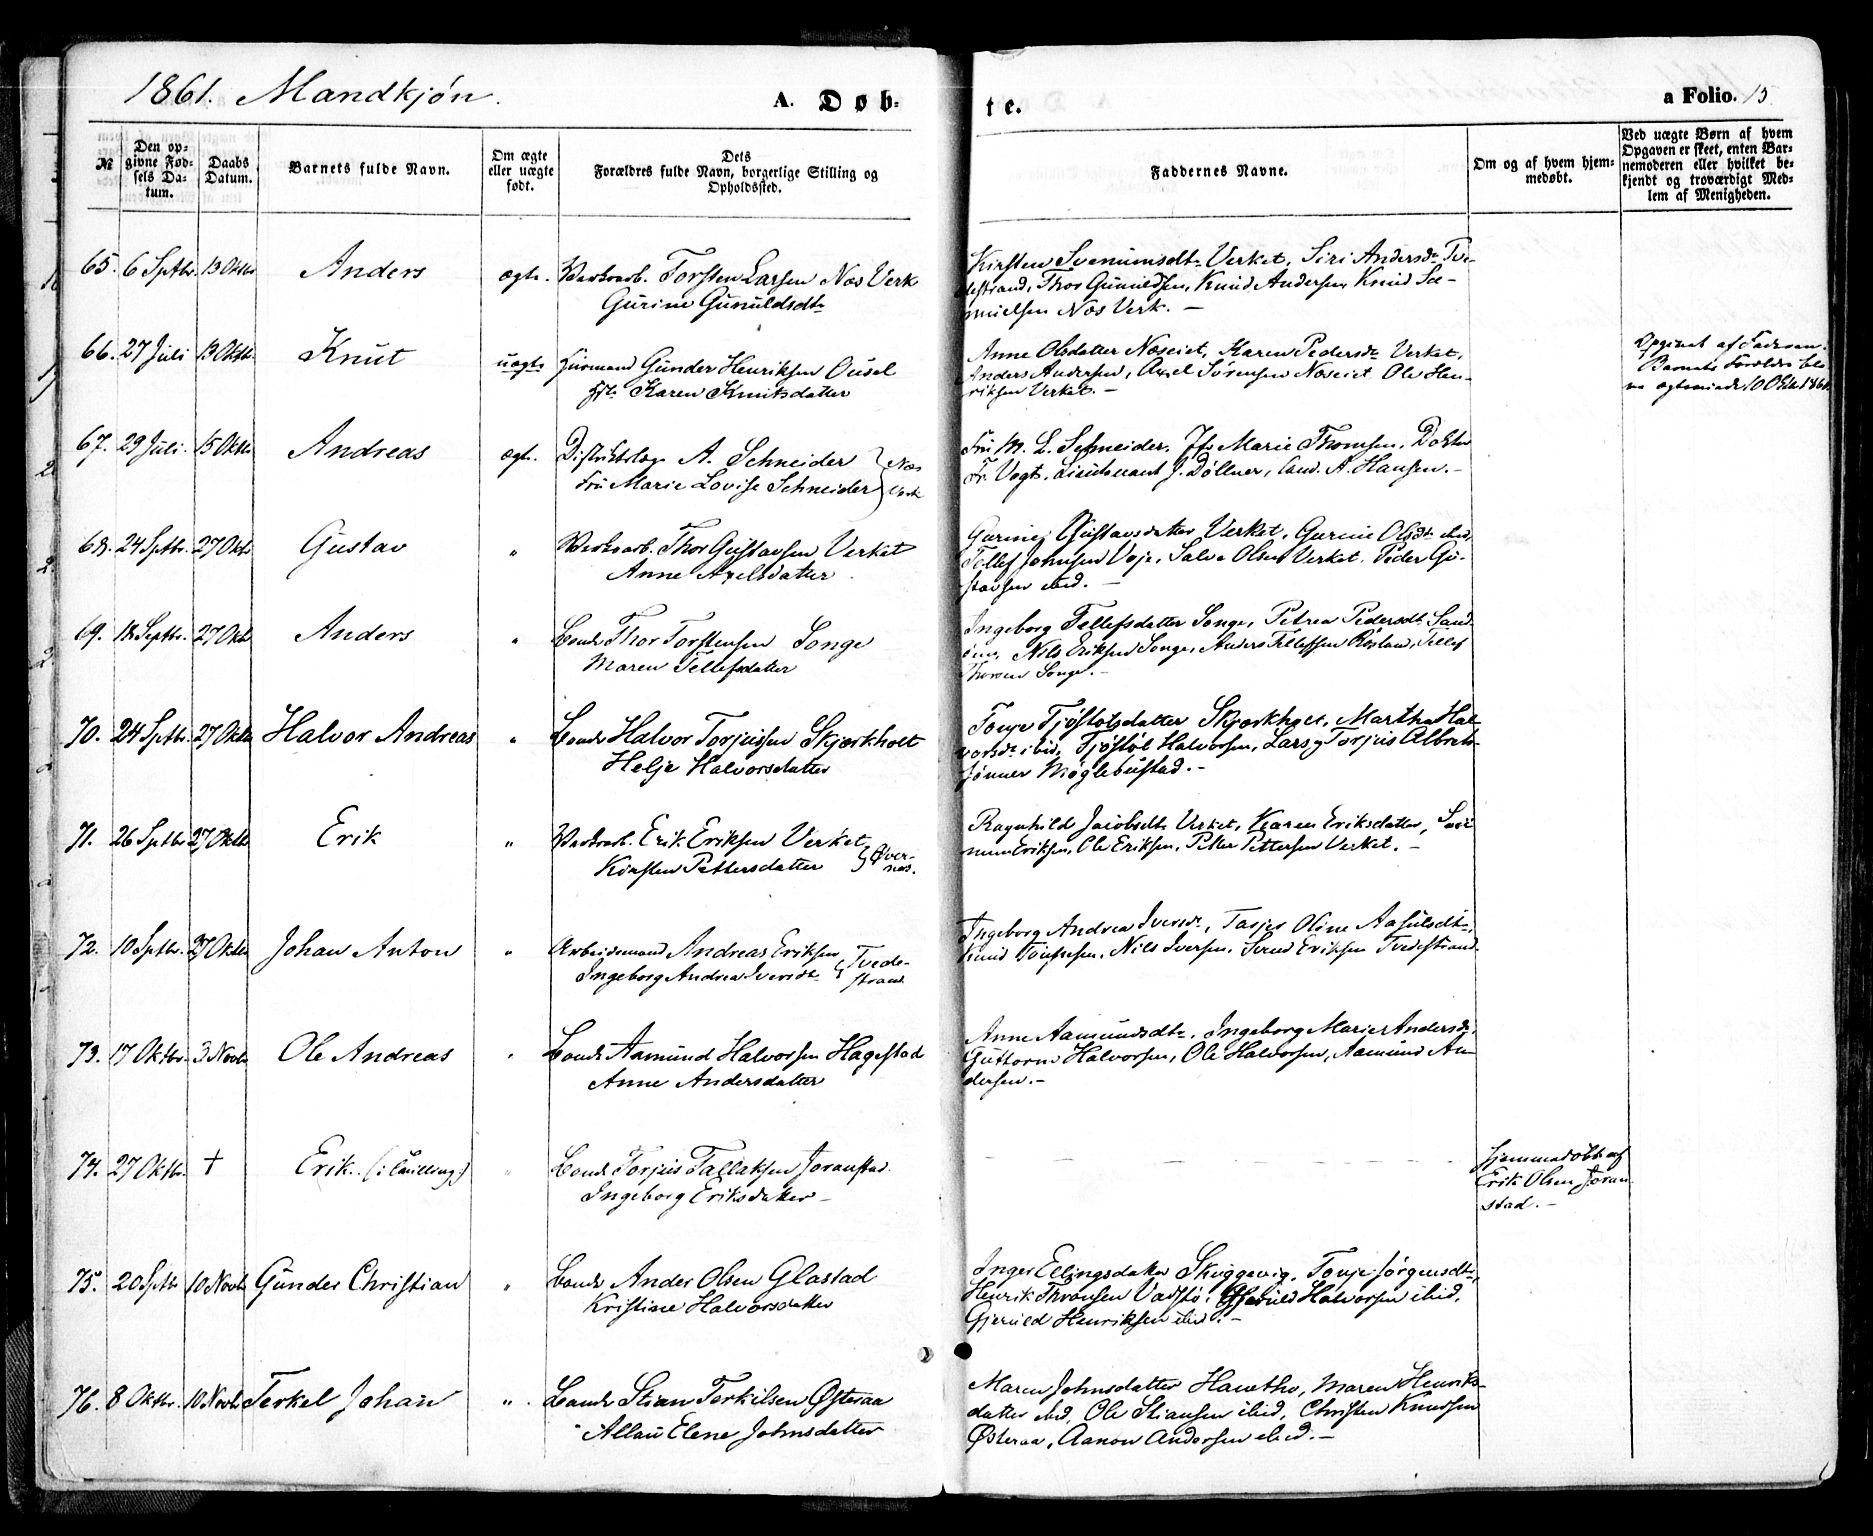 1861. Mandkjøn.
A. Døb-
te.
a Folio. 15
№
Den op-
givne Fød-
sels Da-
tum.
Daabs
Datum.
Barnets fulde Navn.
Om ægte
eller uægte
født.
Dets
Forældres fulde Navn, borgerlige Stilling og
Opholdssted.
Faddernes Navne.
Om og af hvem hjem-
medøbt.
Ved uægte Børn af hvem
Opgaven er skeet, enten Bar-
nemoderen eller hvilket be-
kjendt og troværdigt Med-
lem af Menigheden.
65. 6 Septbr. 13 Oktbr. Anders ægte. Værksarb. Torsten Larsen Næs Verk
Gurine Gunuldsdtr
Kirsten Svenumsdtr Verket, Siri Andersdr Tve-
destrand, Thor Gunuldsen, Knud Andersen, Knud Sa-
muelsen Næs Verk. —
66. 27 Juli 13 Oktbr. Knut uægte Furmand Gunder Henriksen Ousel
Karen Knutsdatter
Anne Olsdatter Næseiet, Karen Pedersdr Verket,
Anders Andersen, Axel Sørensen Næseiet, Ole Hen-
riksen Verket. —
Opgivet af Faderen.
Barnets Forældre ble-
ve ægteviede 10 Oktb. 1861.
67. 29 Juli. 15 Oktbr Andreas ægte. Distriktslæge A. Schneider
Fru Marie Lovise Schneider } Næs Verk
Fru M. L. Schneider, Jfr Marie Thomsen, Doktor
Fr. Vogt, Lieutenant J. Døllner, Cand. A. Hansen. —
68. 24 Septbr. 27 Oktbr Gustav " Værksarb. Thor Gustavsen Verket
Anne Axelsdatter.
Gustavsdatter Verket, Gurine Olsdtr ibid,
Tellef Johnsen Voje, Salve Olsen Verket, Peder Gu-
stavsen ibid. —
69. 18 Septbr. 27 Oktbr Anders " Bonde Thor Torstensen Songe
Maren Tellefsdatter
Ingeborg Tellefsdatter Songe, Petrea Pedersdtr Sand-
Nils Eriksen Songe, Anders Tellefsen Røsland, Tellef
Thorsen Songe. —
70. 24 Septbr. 27 Oktbr Halvor Andreas " Bonde Halvor Torjussen Skjærkholt
Helje Halvorsdatter
Tonje Tjøstolsdatter Skjærkholt, Martha Hal-
vorsdr ibid, Tjøstøl Halvorsen, Lars og Torjus Albrets-
sønner Møglebustad. —
71. 26 Septbr 27 Oktbr Erik " Værksarb. Erik Eriksen Verket,
Kirsten Pettersdatter } Øver-
næs.
Ragnhild Jacobsdtr Verket, Karen Eriksdatter,
Eriksen, Ole Eriksen, Petter Pettersen Verket. —
72. 10 Septbr. 27 Oktbr Johan Anton " Arbeidsmand Andreas Eriksen
Ingeborg Andrea Iversdr } Tvede-
strand
Ingeborg Andrea Iversdr, Oline Aasulsdtr,
Knud Nils Iversen, Svend Eriksen Tvedestrand.
73. 17 Oktbr. 3 Novbr Ole Andreas " Bonde Aamund Halvorsen Hagestad
Anne Andersdatter
Anne Aamundsdtr, Ingeborg Marie Andersdr,
Guttorm Halvorsen, Ole Halvorsen, Aamund An-
dersen. —
74. 27 Oktbr. † Erik (: Tvilling :) " Bonde Torjus Tallaksen Joranstad.
Ingeborg Eriksdatter —
Hjemmedøbt af
Erik Olsen Joran-
stad. —
75. 20 Septbr 10 Novbr Gunder Christian " Bonde Ander Olsen Glastad
Kristine Halvorsdatter
Inger Ellingsdatter Skuggevig, Tonje Jørgensdtr,
Henrik Vadstø, Gjeruld Halvorsen ibid,
Gjeruld Henriksen ibid. —
76. 8 Oktbr. 10 Novbr. Terkel Johan " Bonde Stian Terkilsen Østeraa
Allau Elene Johnsdatter
Maren Johnsdatter Maren Henriks-
datter ibid, Ole Stiansen ibid, Christen Knudsen
Østeraa, Aanon Andersen ibid. —